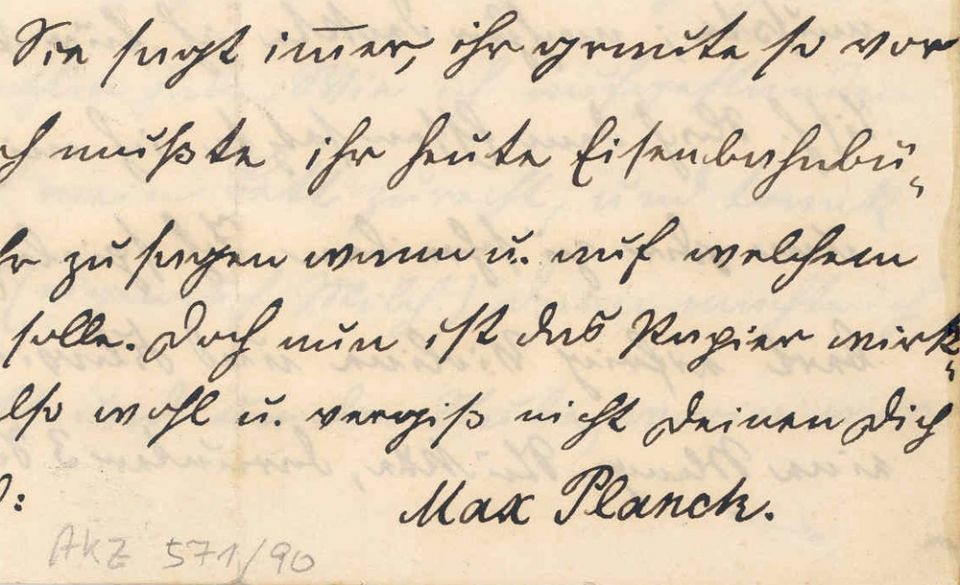 Sie sagt immer, ihr graute so vor
ch mußte ihr heute Eisenbahnbü-
hr zu sagen wann u. auf welchem
solle. Doch nun ist das Papier wirk-
lso wohl u. vergiß nicht Deinen Dich
Max Planck.
AKZ 571/90